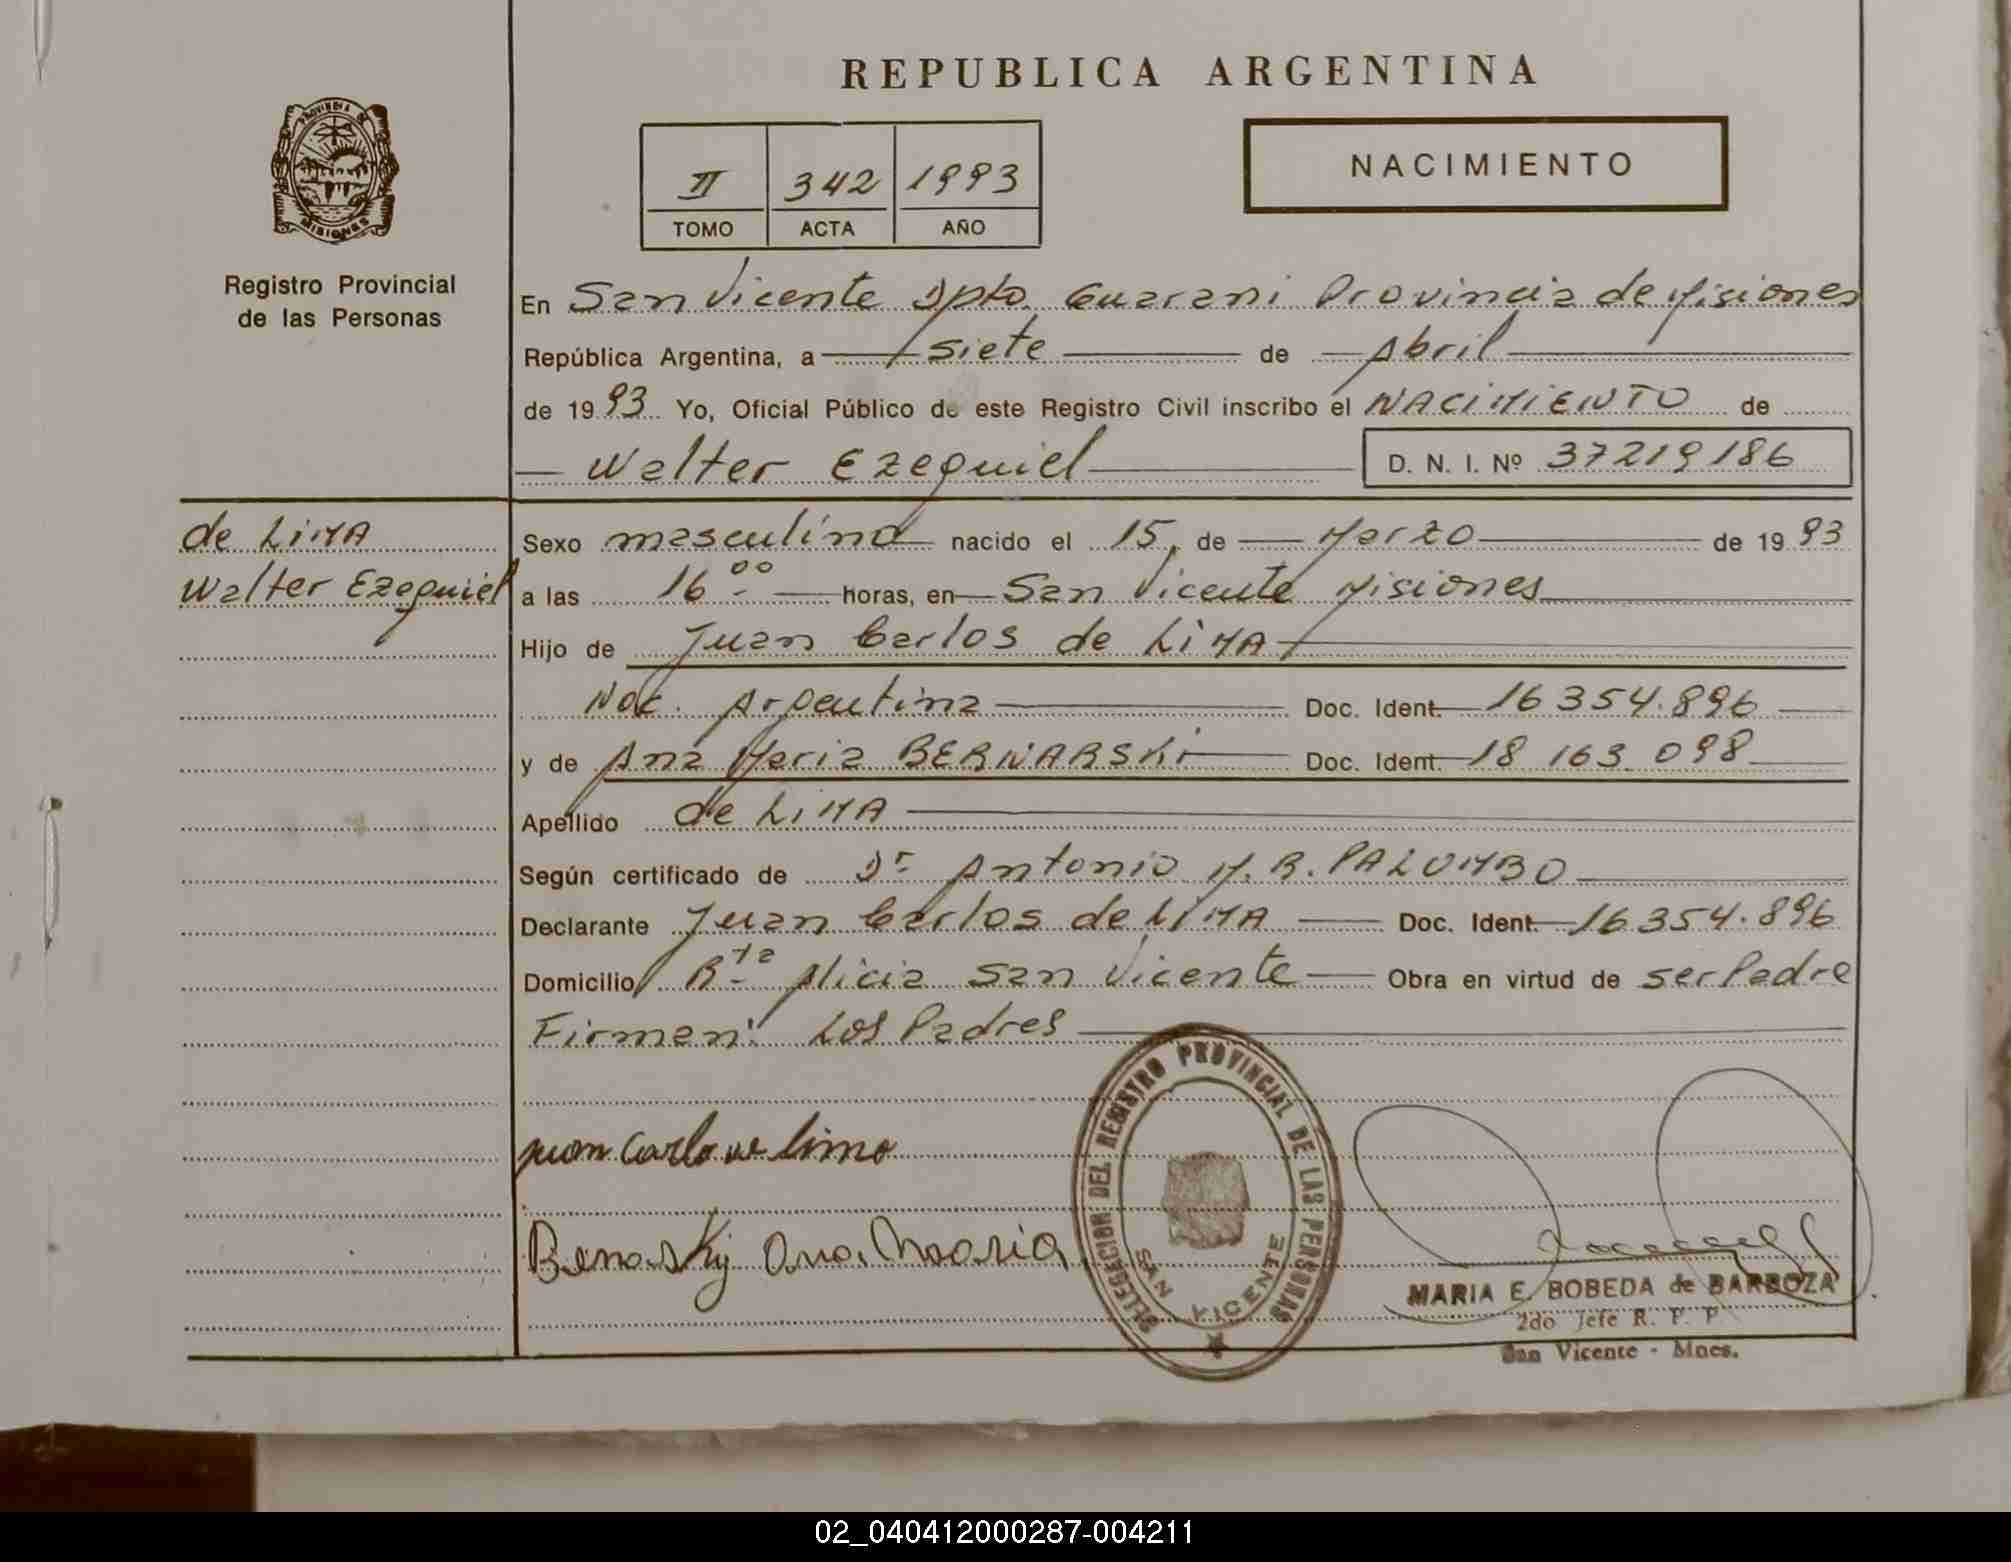 REPUBLICA ARGENTINA
PROVINCIA DE MISIONES
Registro Provincial
de las Personas
II 342 1993
TOMO ACTA AÑO
NACIMIENTO
En San Vicente Dpto. Guarani Provincia de Misiones
República Argentina, a siete de Abril
de 1993 Yo, Oficial Público de este Registro Civil inscribo el NACIMIENTO de
Walter Ezequiel D. N. I. Nº 37219186
de LiMA
Walter Ezequiel
Sexo masculino nacido el 15 de Marzo de 1993
a las 16 00 horas, en San Vicente Misiones
Hijo de Juan Carlos de LiMA
Nac. Argentina Doc. Ident. 16 354.896
y de Ana Maria BERNARSKi Doc. Ident. 18 163.098
Apellido de LiMA
Según certificado de Dr Antonio M. R. PALUMBO
Declarante Juan Carlos de LiMA Doc. Ident. 16354.896
Domicilio Rta Alicia San Vicente Obra en virtud de ser Padre
Firman: Los Padres
juan Carlo de lima
Benarskij Ana Maria
DELEGACION DEL REGISTRO PROVINCIAL DE LAS PERSONAS
SAN VICENTE
MARIA E. BOBEDA de BARBOZA
2do Jefe R. P. P.
San Vicente - Mnes.
02_040412000287-004211